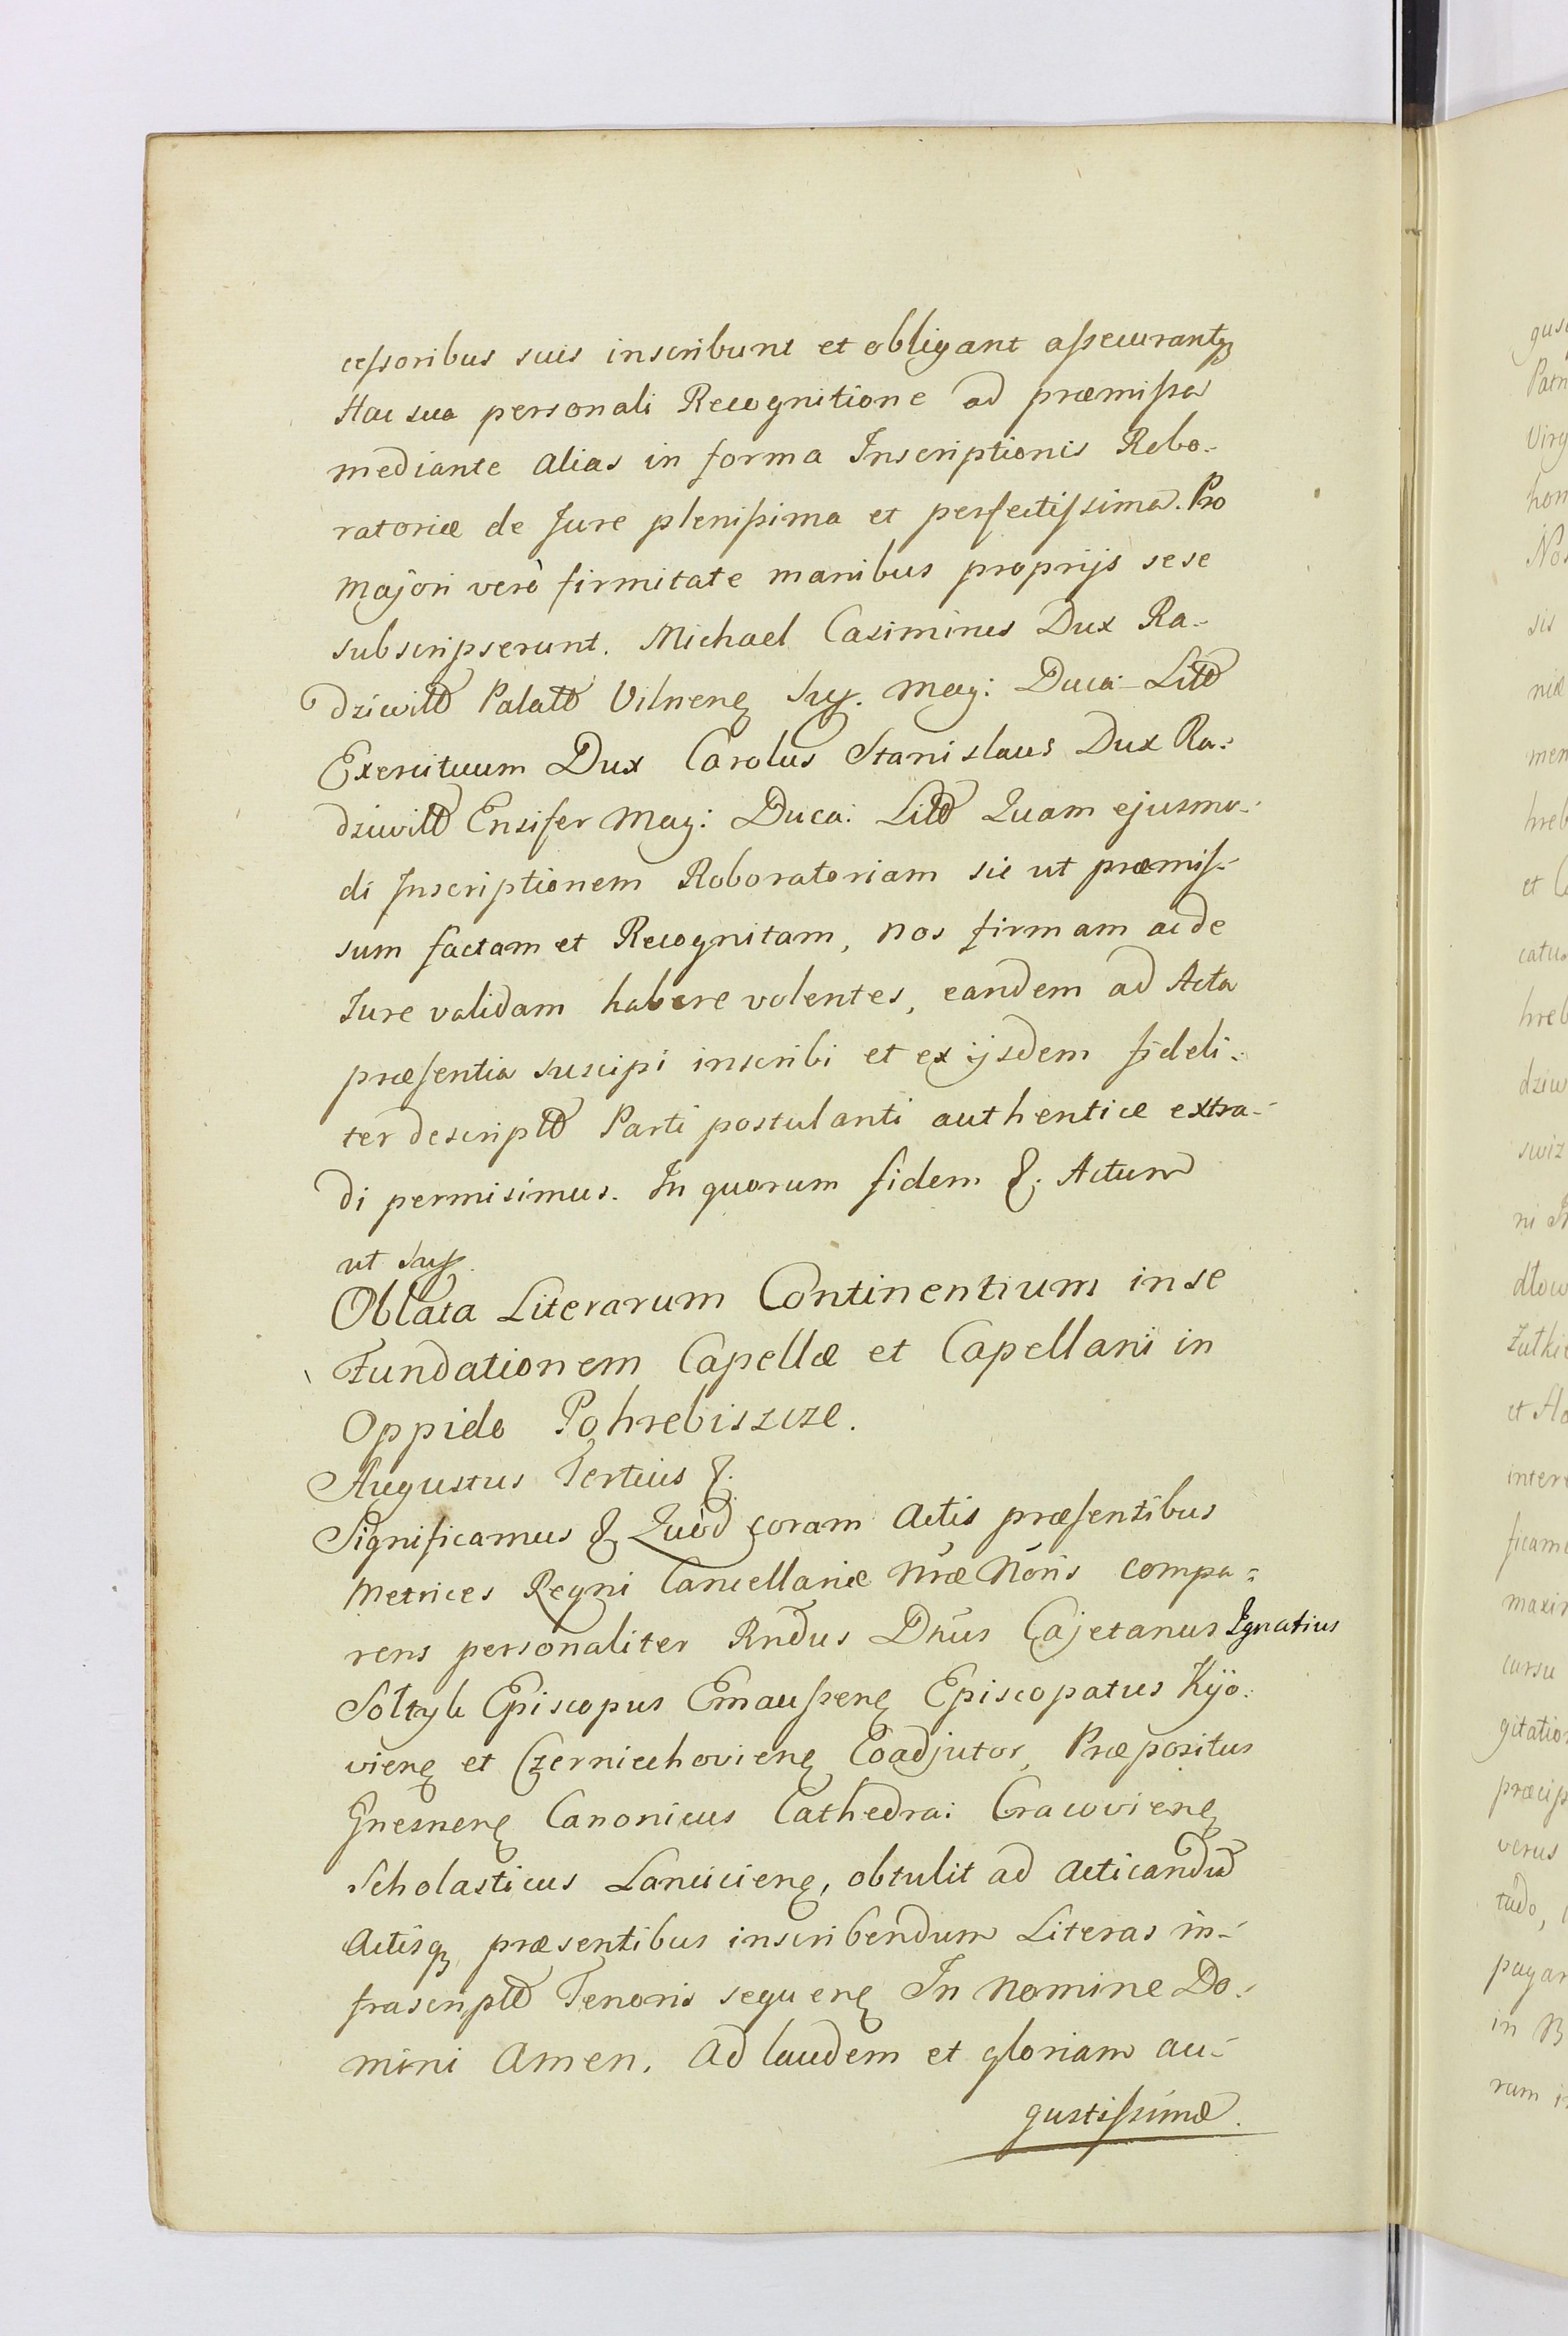 cessoribus suis inscribunt et obligant assecurantq
Hac sua personali Recognitione ad præmissa
mediante alias in forma Inscriptionis Robo-
ratoriæ de Jure plenissima et perfectissima. Pro
Majori verò firmitate manibus proprijs sese
subscripserunt. Michael Casimirus Dux Ra-
dziwiłł Palatt Vilnenę Sup. Mag: Duca: Litt
Exercituum Dux Carolus Stanislaus Dux Ra-
dziwiłł Ensifer Mag: Duca: Litt Quam ejusmo-
di Inscriptionem Roboratoriam sic ut præmis-
sum factam et Recognitam, nos firmam ac de
Jure validam habere volentes, eandem ad Acta
præsentia suscipi inscribi et ex ijsdem fideli-
ter descriptt Parti postulanti authentice extra-
di permisimus. In quorum fidem &. Actum
ut sup.
Oblata Literarum Continentium in se
Fundationem Capellæ et Capellani in
Oppido Pohrebiszcze.
Augustus Tertius &.
Significamus & Quòd coram Actis præsentibus
Metrices Regni Cancellariæ Nræ Moris compa-
rens personaliter Rndus Dnus Cajetanus Ignatius
Sołtyk Episcopus Emaussenę Episcopatus Kijo-
vienę et Czerniechovienę Coadjutor, Præpositus
Gnesnenę Canonicus Cathedra: Cracovienę
Scholasticus Lancicienę, obtulit ad acticandū
Actisq præsentibus inscribendum Literas in-
frascriptt Tenoris sequenę In Nomine Do-
mini Amen. Ad laudem et gloriam au-
gustissimæ.